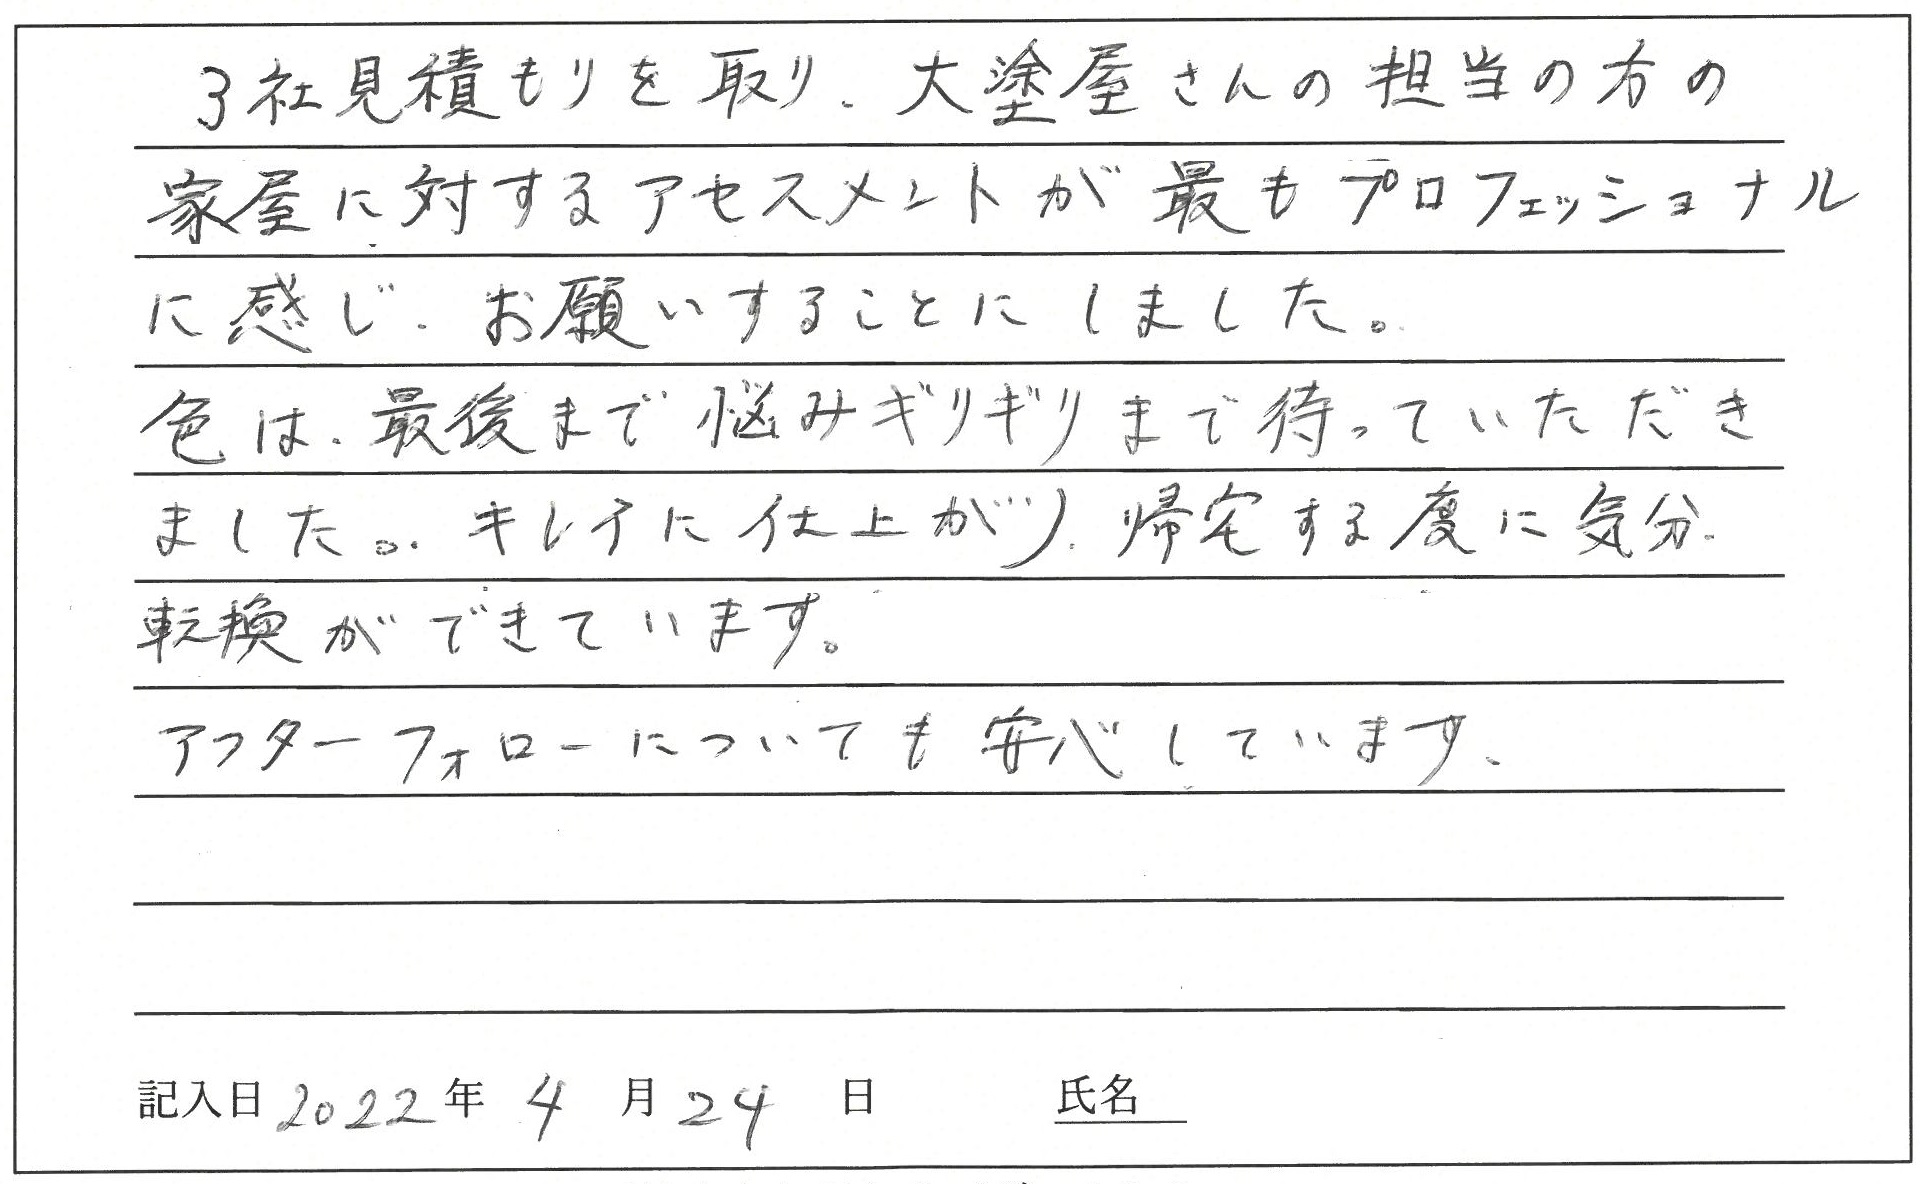 3社見積もりを取り、大塗屋さんの担当の方の
家屋に対するアセスメントが最もプロフェッショナル
に感じ、お願いすることにしました。
色は、最後まで悩みギリギリまで待っていただき
ました。キレイに仕上がり、帰宅する度に気分
転換ができています。
アフターフォローについても安心しています。
記入日 2022年 4月 24日 氏名